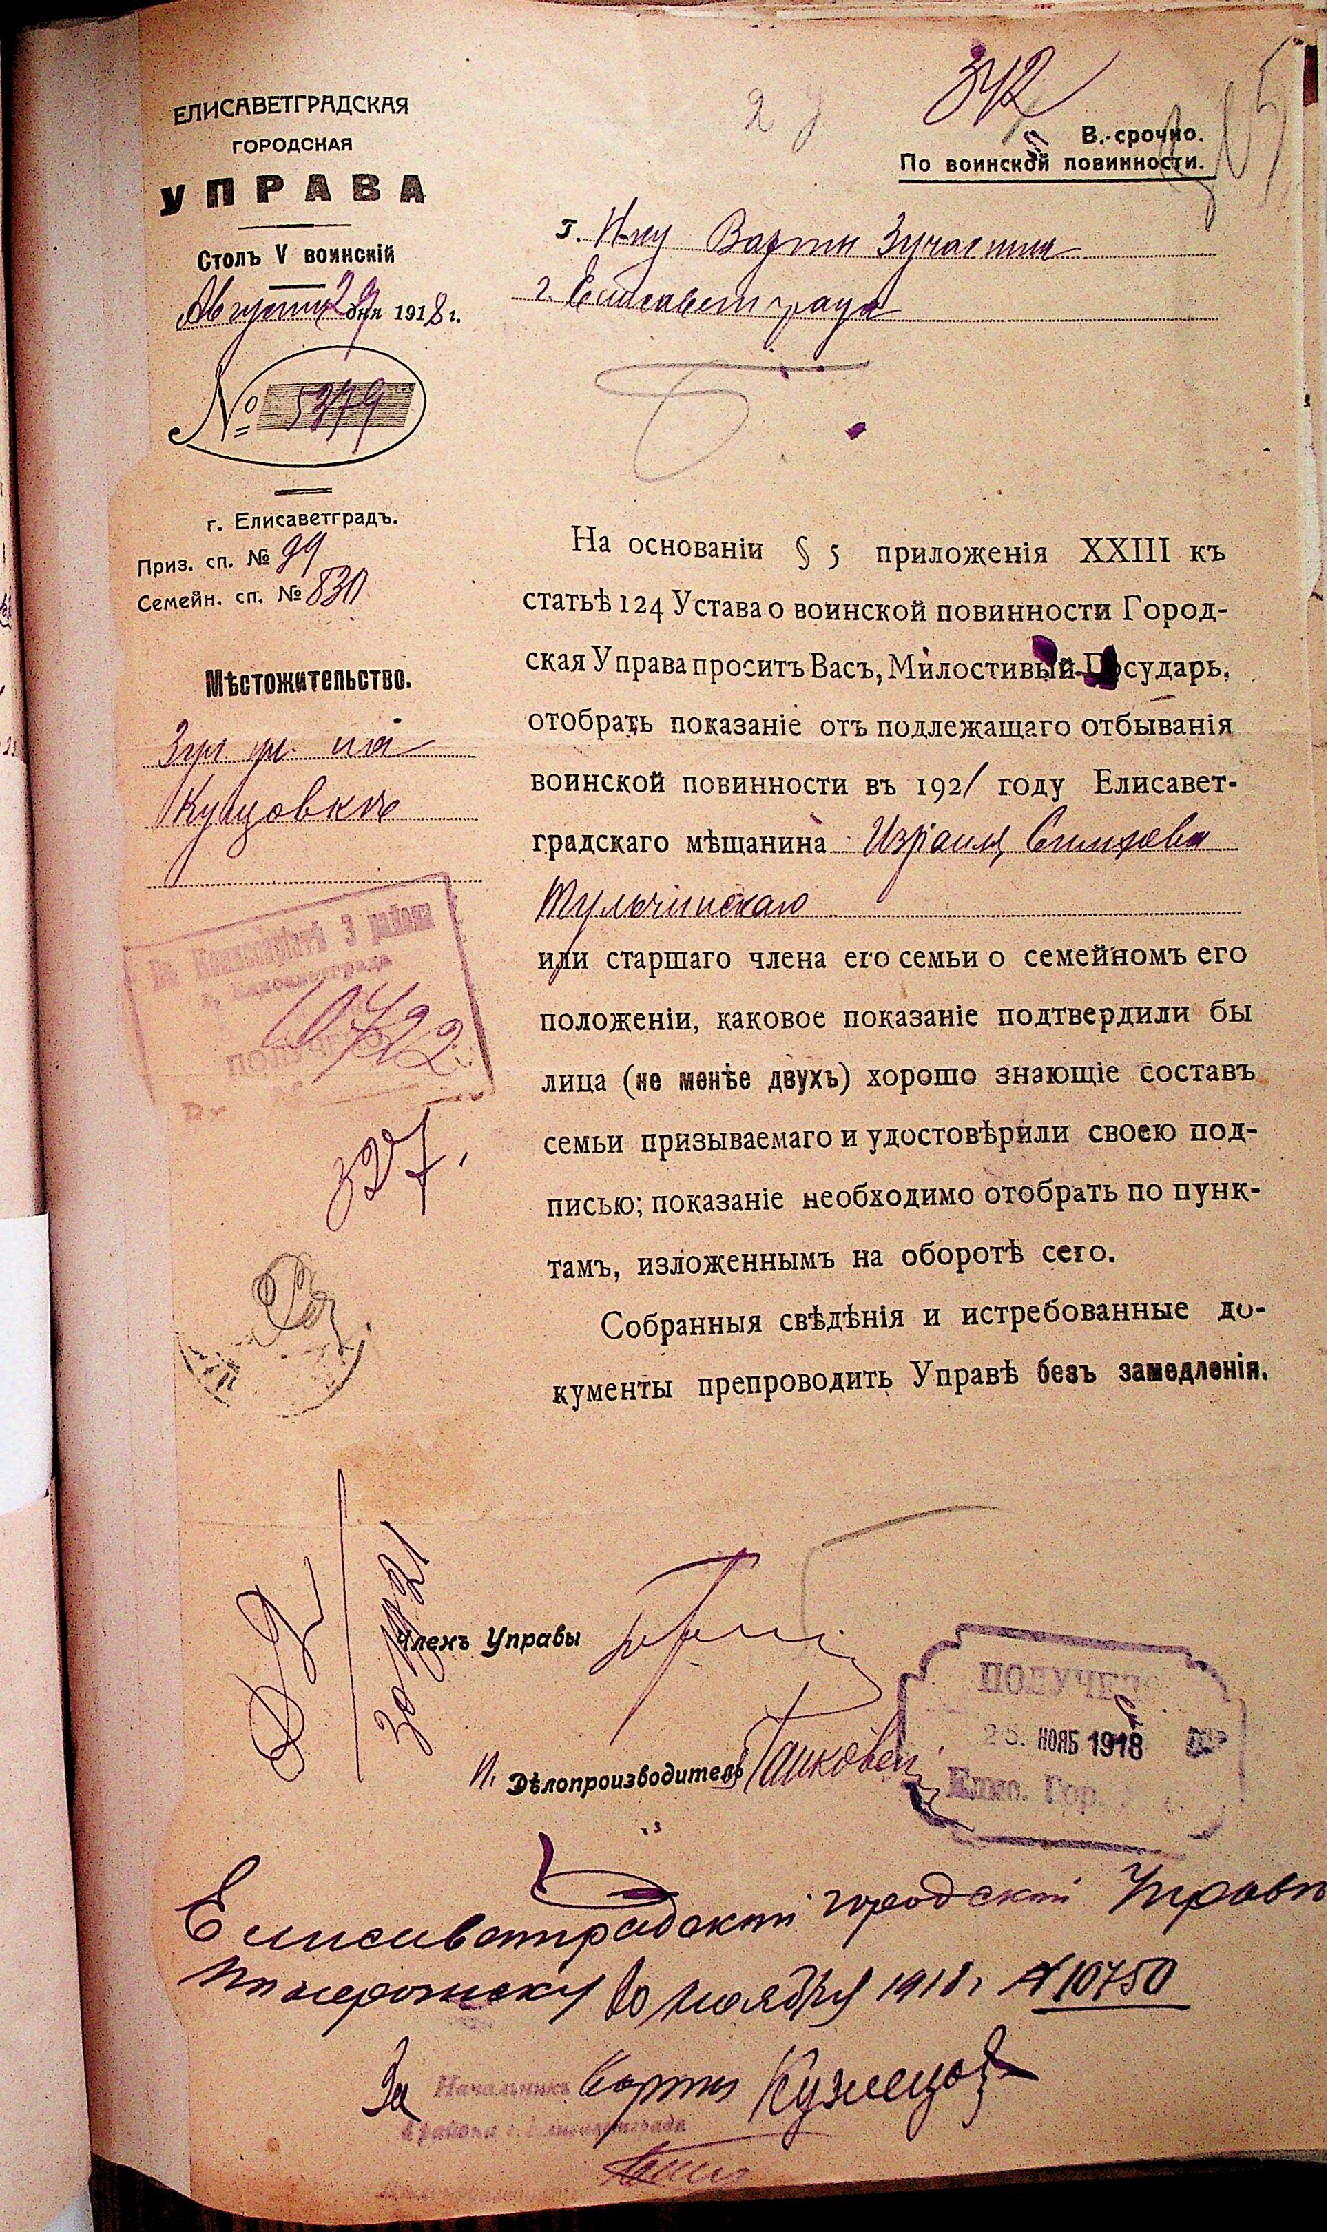 342
ЕЛИСАВЕТГРАДСКАЯ
ГОРОДСКАЯ
УПРАВА
Столъ V воинскій
Августа 29 дня 1918 г.
№ 5379
г. Елисаветградъ.
Приз. сп. № 99
Семейн. сп. № 830
Мѣстожительство.
В.-срочно.
По воинской повинности.
г. Н-ку Варты 3 участка
г. Елисаветграда
На основаніи § 5 приложенія XXIII къ
статьѣ 124 Устава о воинской повинности Город-
ская Управа проситъ Васъ, Милостивый Государь,
отобрать показаніе отъ подлежащаго отбыванія
воинской повинности въ 1921 году Елисавет-
градскаго мѣщанина Израиля Симхова
Тульчинскаго
или старшаго члена его семьи о семейномъ его
положеніи, каковое показаніе подтвердили бы
лица (не менѣе двухъ) хорошо знающіе составъ
семьи призываемаго и удостовѣрили своею под-
писью; показаніе необходимо отобрать по пунк-
тамъ, изложеннымъ на оборотѣ сего.
Собранныя свѣдѣнія и истребованные до-
кументы препроводить Управѣ безъ замедленія.
3 района
ПОЛУЧЕНО
10722
327.
Членъ Управы
И. Дѣлопроизводитель
ПОЛУЧЕНО
НОЯБ 1918
Елис. Гор.
Елисаветградской городской Управѣ
10 ноября 1918 г № 10750
За Начальник Варты Кузнецов
района г. Елисаветграда